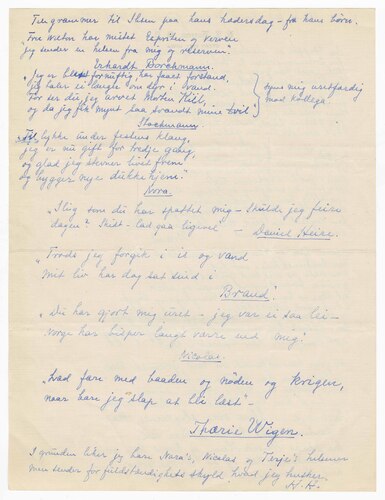 Telegrammer til Ibsen paa hans hædersdag – fra hans børn.
Fru Wilton har mistet Espriten og verven
"jeg sender en hilsen fra mig og
Erhardt Borchmann.
"Jeg er blevet fornuftig, har faaet forstand,
jeg taler ei længer om dyr i vand.
For ser du, jeg arvet Morten Kiil,
og da fik mynt saa svandt mine tvil
Stockmann.
"Til lykke under festens klang,
jeg er nu gift for tredje gang,
og glad jeg skriver livet frem
og bygger nye dukkehjem."
Nora.
"Slig som du har spottet mig – skulde jeg feire
dagen? Skidt – lad gaa ligevel" – Daniel Heire.
"Trods jeg forgik i is og vand
Mit liv har dog sat ind i
Brand".
"Du har gjort mig uret – jeg var ei saa lei –
Norge har bisper langt værre end mig."
Nicolas.
"hvad fare med baaden og nøden og krigen,
naar bare jeg slap at bli læst" –
Thærie Wigen.
I grunden liker jeg bare Nora's, Nicolas og Terje's hilsener
men sender for fuldstændighets skyld hvad jeg husker.
H. H.